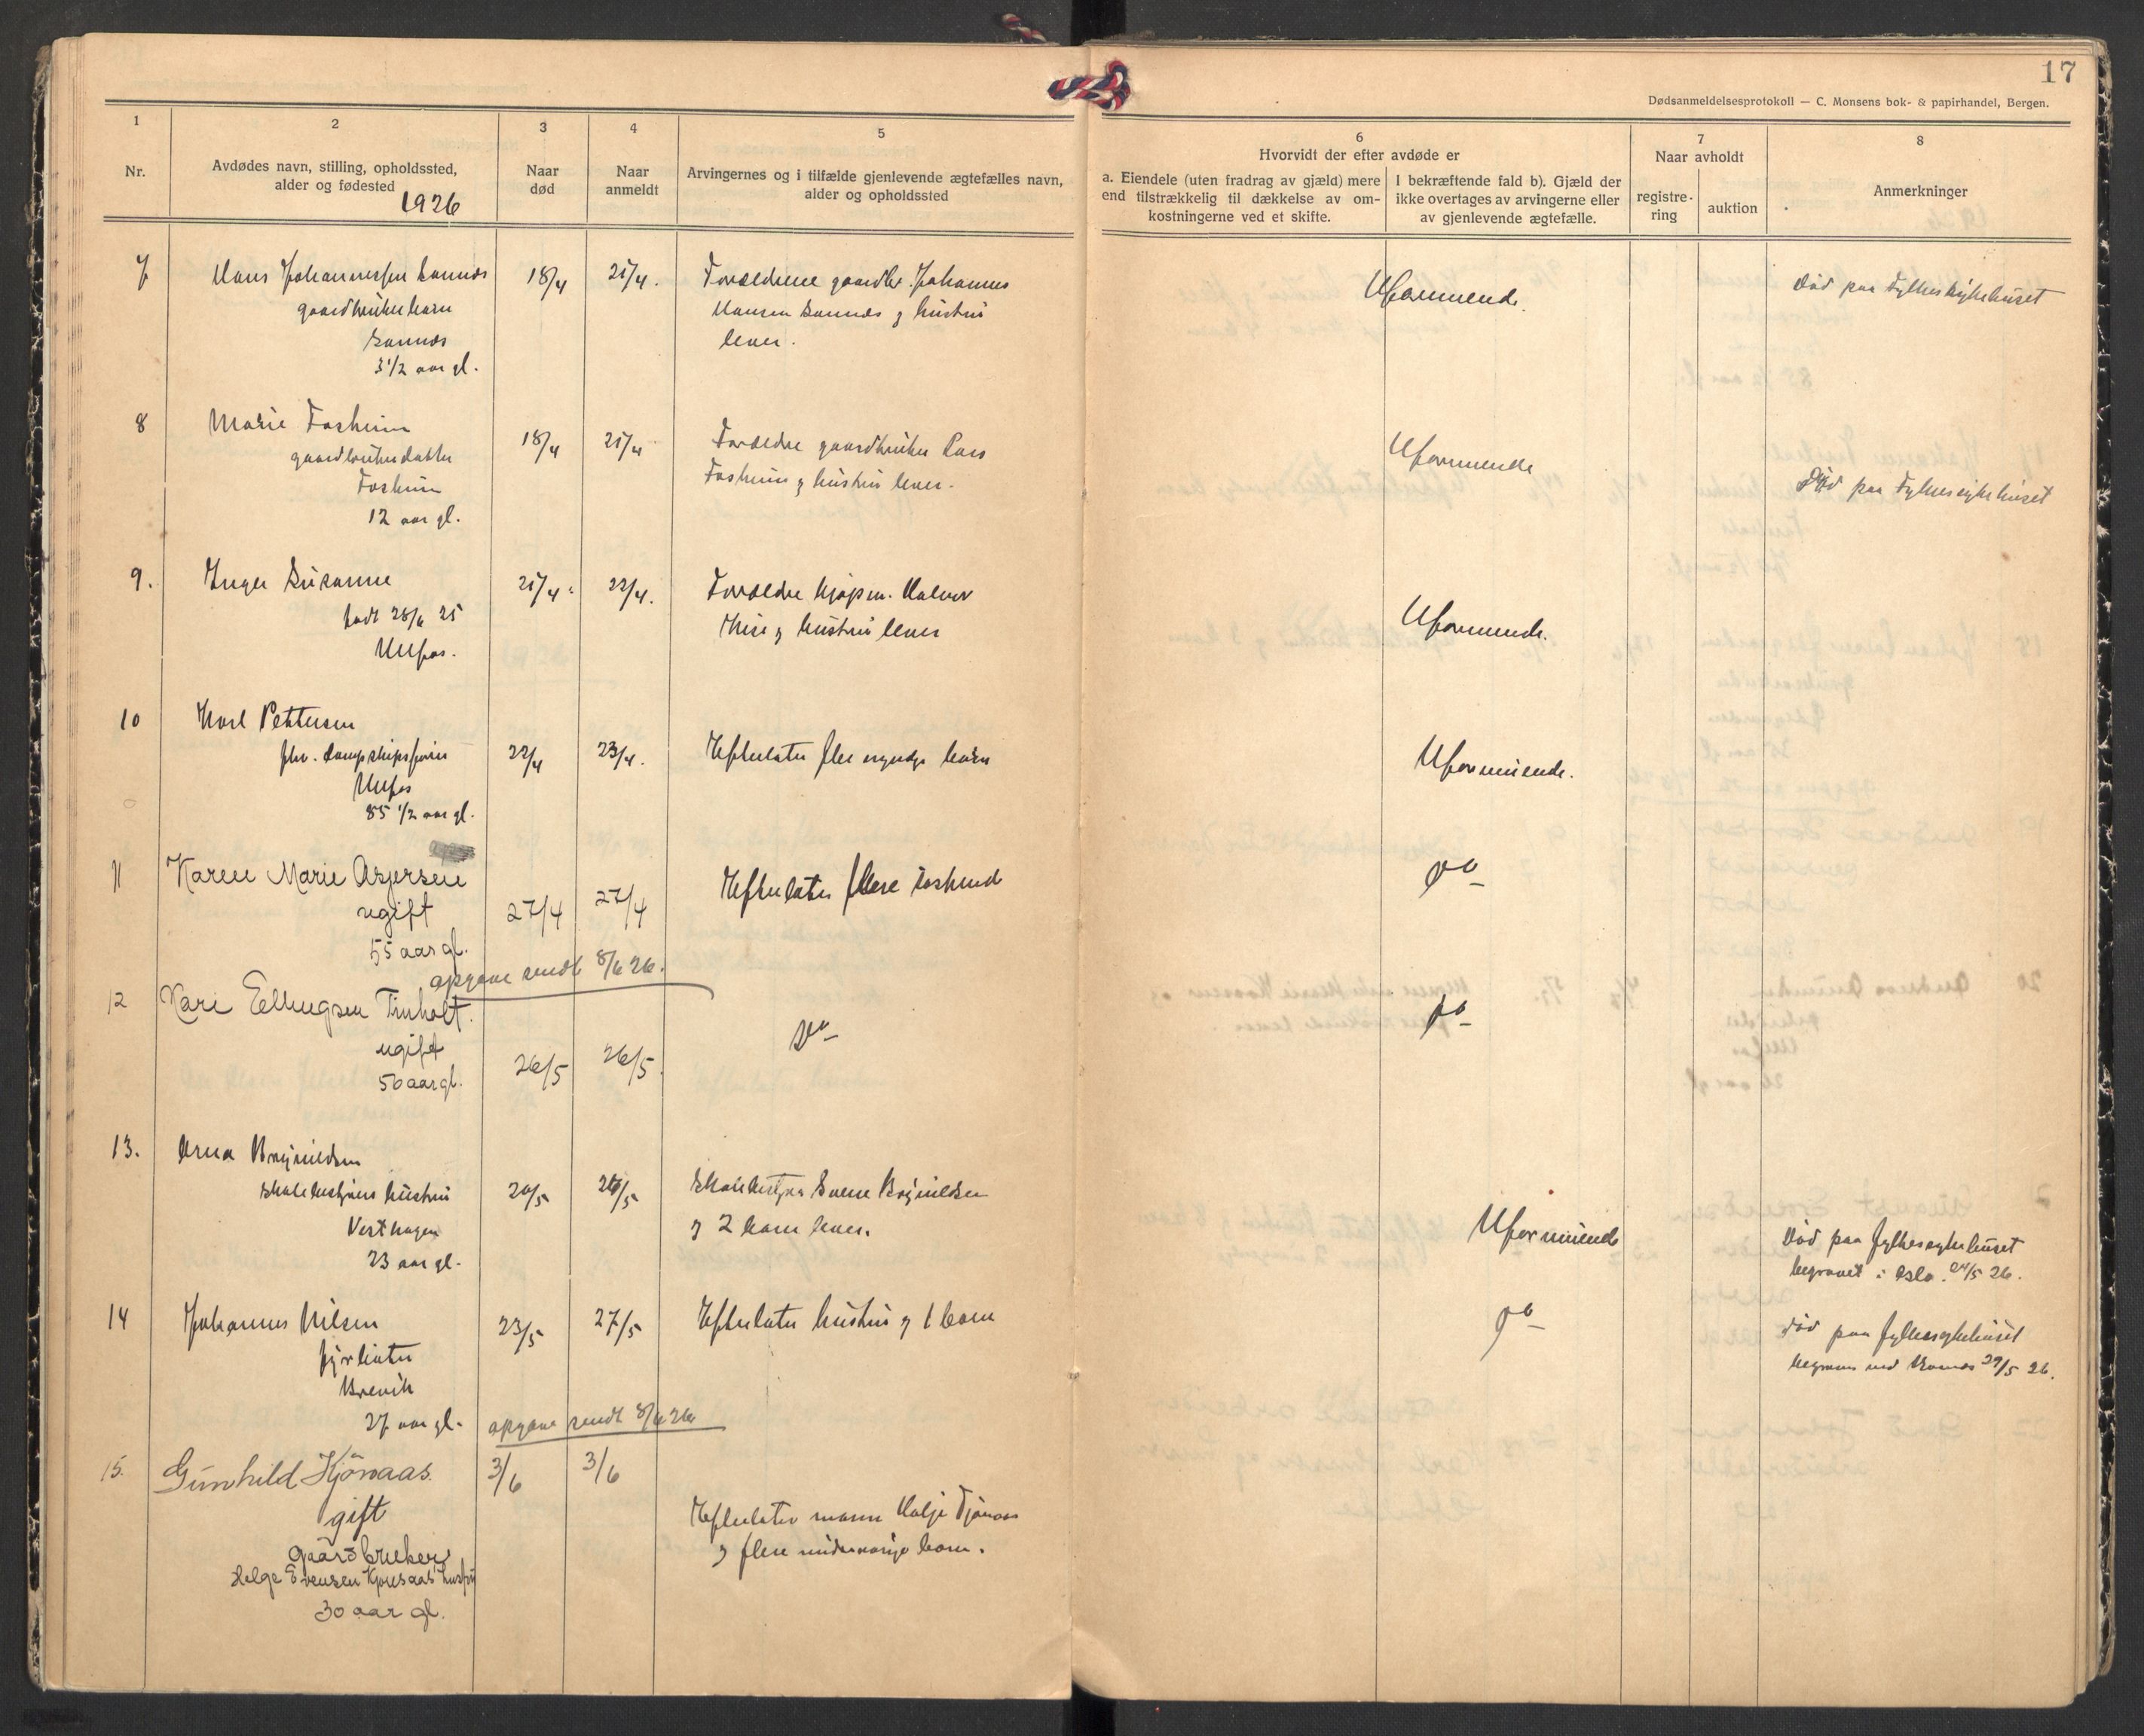 17
Dødsanmeldelsesprotokoll — C. Monsens bok- & papirhandel, Bergen.
1
Nr.
2
Avdødes navn, stilling, opholdssted,
alder og fødested
1926
3
Naar
død
4
Naar
anmeldt
5
Arvingernes og i tilfælde gjenlevende ægtefælles navn,
alder og opholdssted
6
Hvorvidt der efter avdøde er
a. Eiendele (uten fradrag av gjæld) mere
end tilstrækkelig til dækkelse av om-
kostningerne ved et skifte.
I bekræftende fald b). Gjæld der
ikke overtages av arvingerne eller
av gjenlevende ægtefælle.
7
Naar avholdt
registre-
ring
auktion
8
Anmerkninger
7
Hans Johannessen Sannes
gaardbrukerbarn
Sannes
3 1/2 aar gl.
18/4
21/4.
Forældrene gaardbr. Johannes
Hansen Sannes og hustru
lever.
Uformuende.
Død paa Fylkessykehuset
8
Marie Forheim
gaardbrukerdatter
Forheim
12 aar gl.
18/4
21/4
Forældre gaardbruker Lars
Forheim og hustru lever.
Uformuende
Død paa Fylkessykehuset
9.
Inger Susanne
født 28/6 25
Ulefos.
21/4
22/4.
Forældre kjøpm. Halvor
og hustru lever
Uformuende.
10
Karl Pettersen
fhv. dampskipsfører
Ulefos
85 1/2 aar gl.
22/4
23/4.
Efterlater flere myndige barn
Uformuende.
11
Karen Marie Aspersen
ugift
55 aar gl.
27/4
27/4
Efterlater flere søskend
do
opgave sendt 8/6 26.
12
Kari Ellingsen Tinholt.
ugift
50 aar gl.
26/5
26/5.
do
do
13.
Arna Brynildsen
skolebestyrers hustru
Vesthagen
23 aar gl.
20/5
20/5
Skolebestyrer Sverre Brynildsen
og 2 barn lever.
Uformuende
Død paa fylkessykehuset
begravet i Oslo. 26.
14
Johannes Nilsen
fyrbøter
Brevik
27 aar gl.
23/5
27/5
Efterlater hustru og 1 barn
do
Død paa fylkessykehuset
begraves ved 29/5 26.
opgave sendt 8/6 26
15.
Gunhild Kjönaas.
gift
gaardbruker
Helge Evensen Kjonaas hustru
30 aar gl.
3/6
3/6
Efterlater mann Helge Tjönaas
og flere mindreaarige barn.